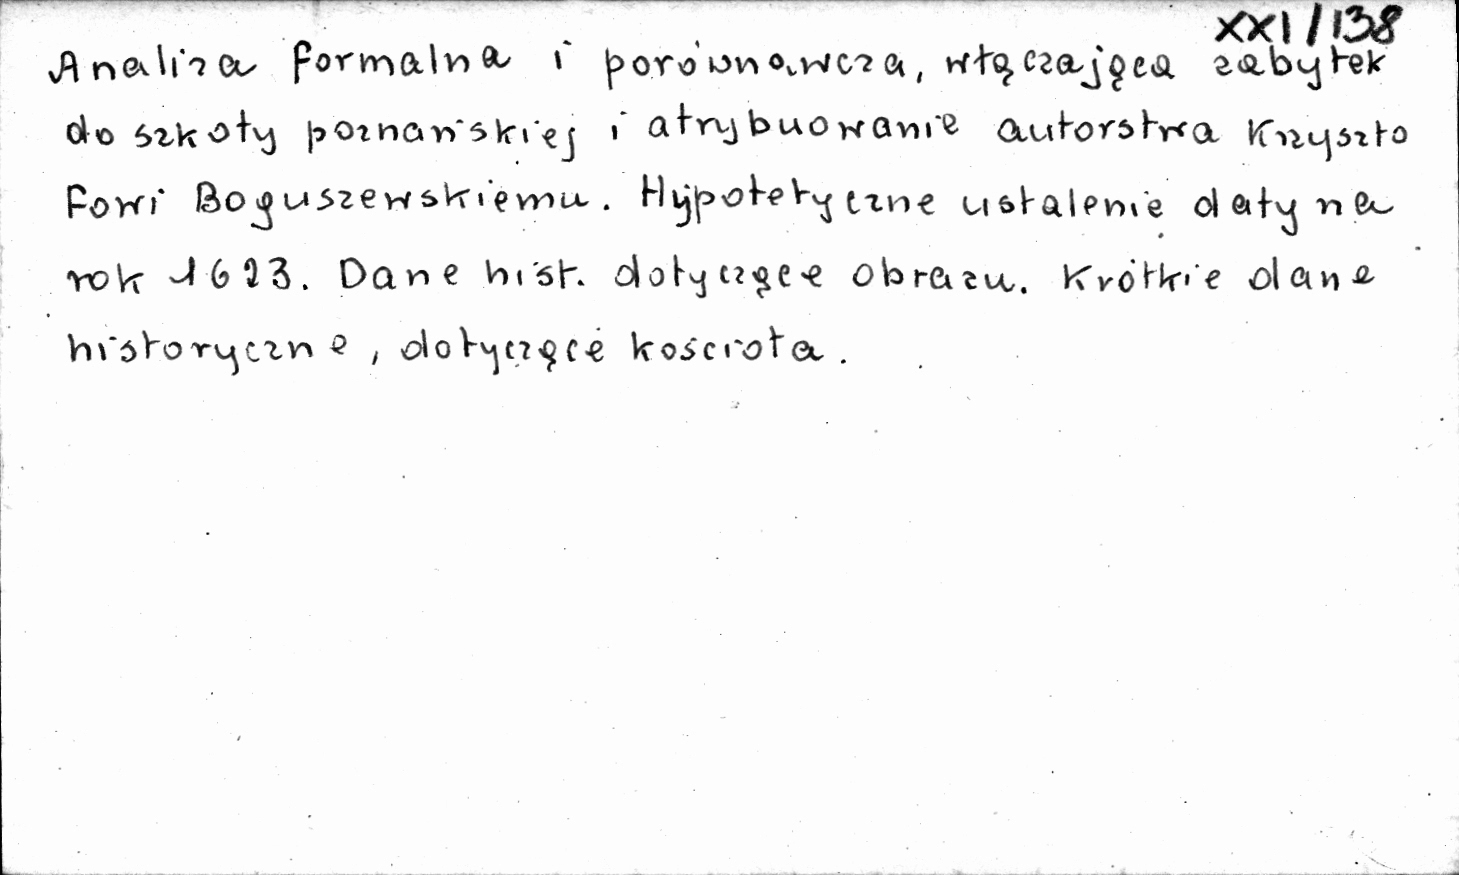 XXI/138
Analiza formalna i porównawcza, włączająca zabytek
do szkoły poznańskiej i atrybuowanie autorstwa Krzyszto
fowi Boguszewskiemu. Hypotetyczne ustalenie daty na
rok 1623. Dane hist. dotyczące obrazu. Krótkie dane
historyczne, dotyczące kościoła.